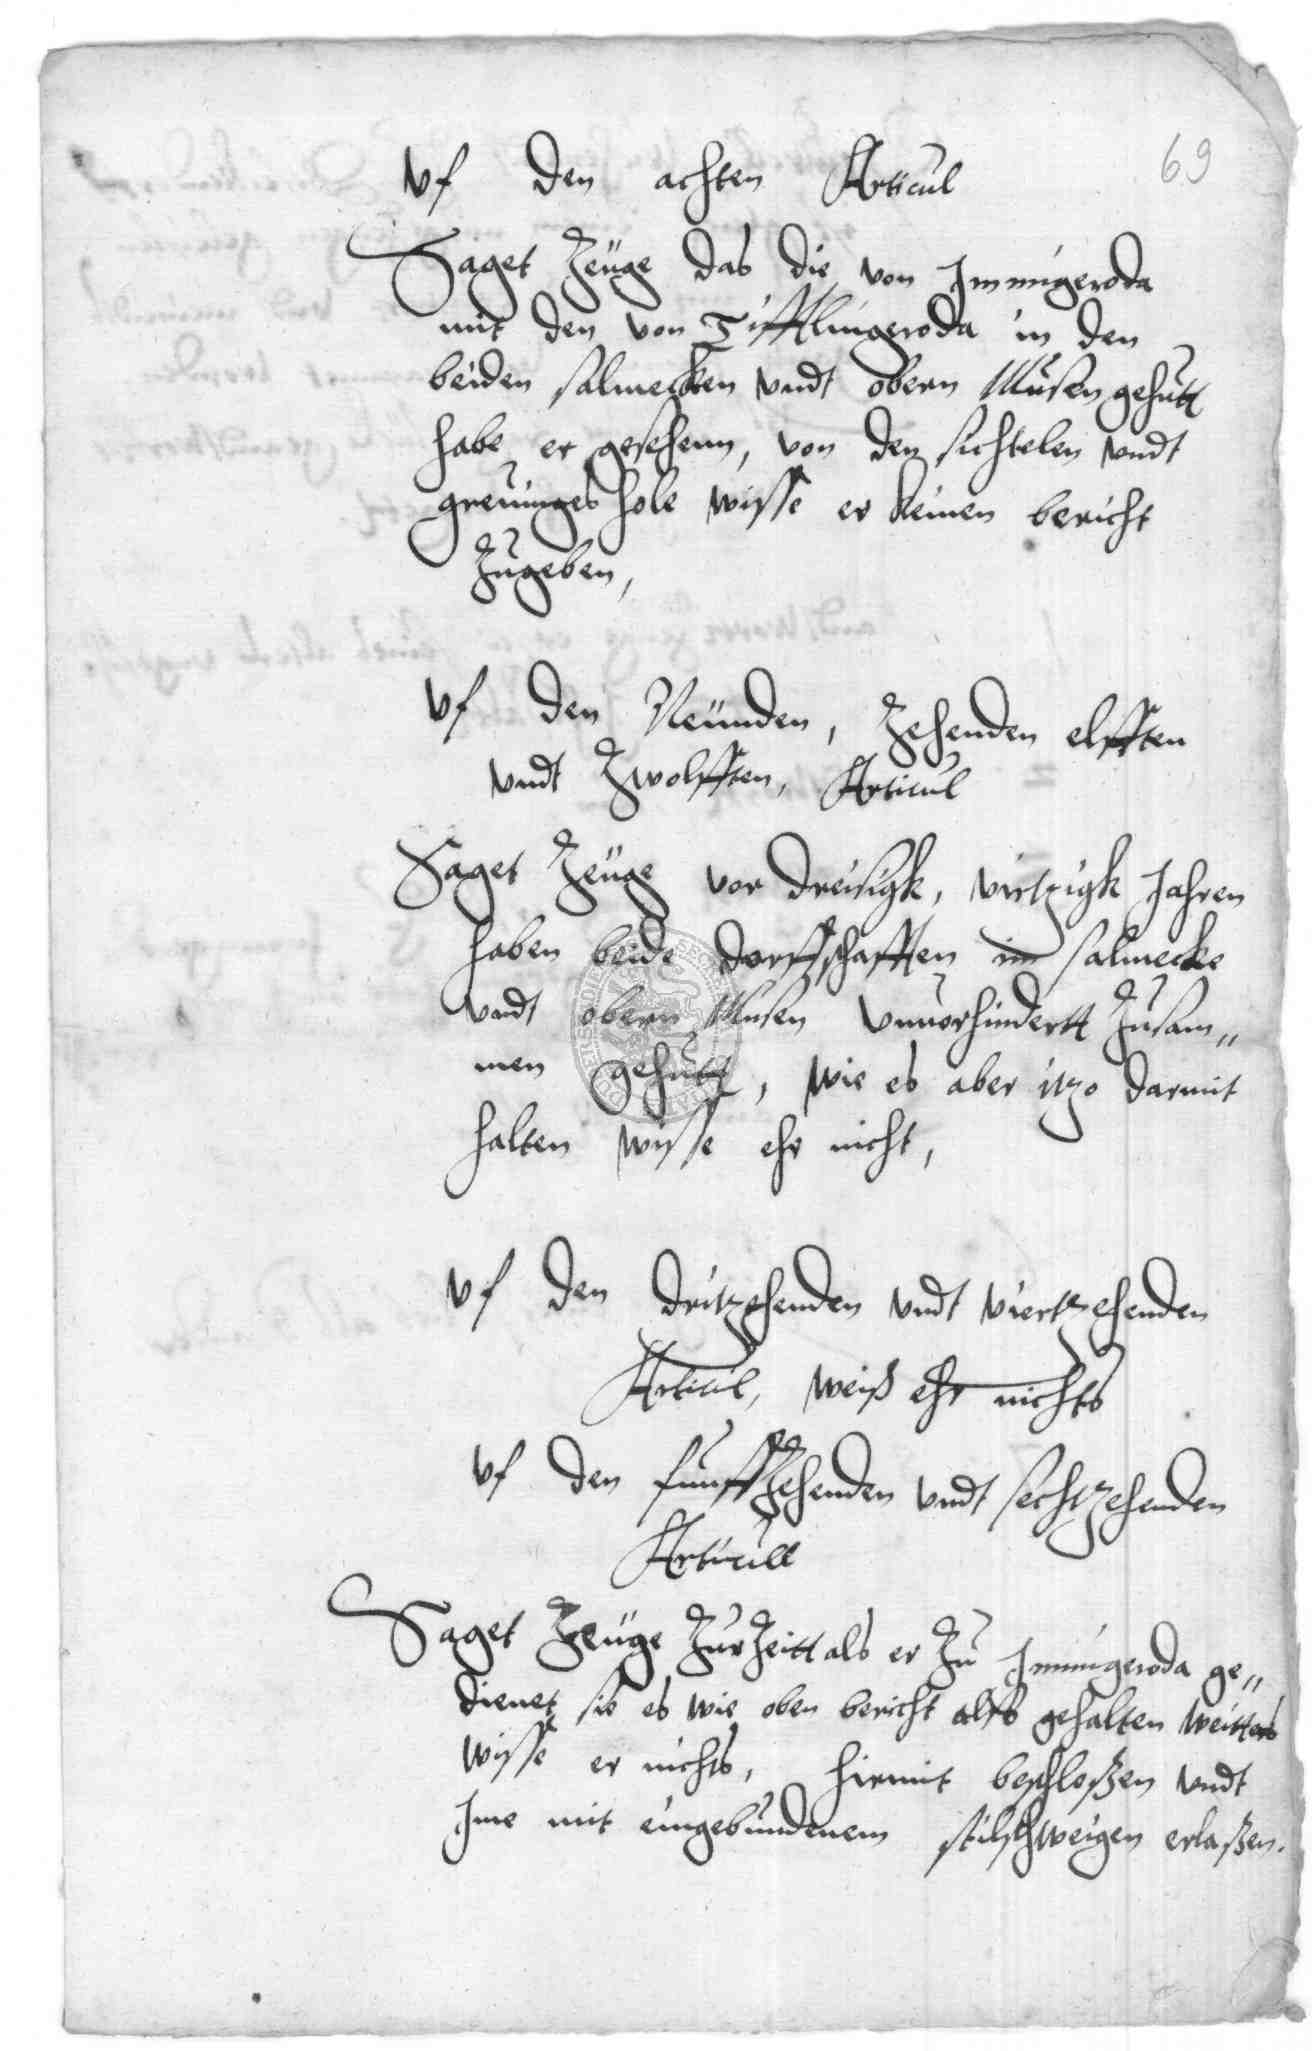 69
Vf den achten Articul
Saget Zeuge das die von Immigeroda
mit den von Tifftlingeroda in den
beiden salmecken vndt obern Musen gehutt
habe er gesehenn, von den sichtelen vndt
greuinges hole wisse er keinen bericht
Zugeben,
Vf den Neunden, Zehenden elfften
vndt Zwolfften, Articul
Saget Zeuge vor dreisigk, virtzigk Jahren
haben beide dorffschafften im salmecke
vndt obern Musen vnuorhindertt Zusam„
men gehutt, wie es aber itzo darmit
halten wisse ehr nicht,
Vf den dritzehenden vndt viertzehenden
Articul, weiß ehr nichts
Vf den funffZehenden vndt sechtzehenden
Articull
Saget Zeuge Zur Zeitt als er Zu Immigeroda ge„
dienet sie es wie oben bericht alß gehalten weitters
wisse er nichts, hirmit beschloßen vndt
Ime mit eingebundenem stilschweigen erlaßen.